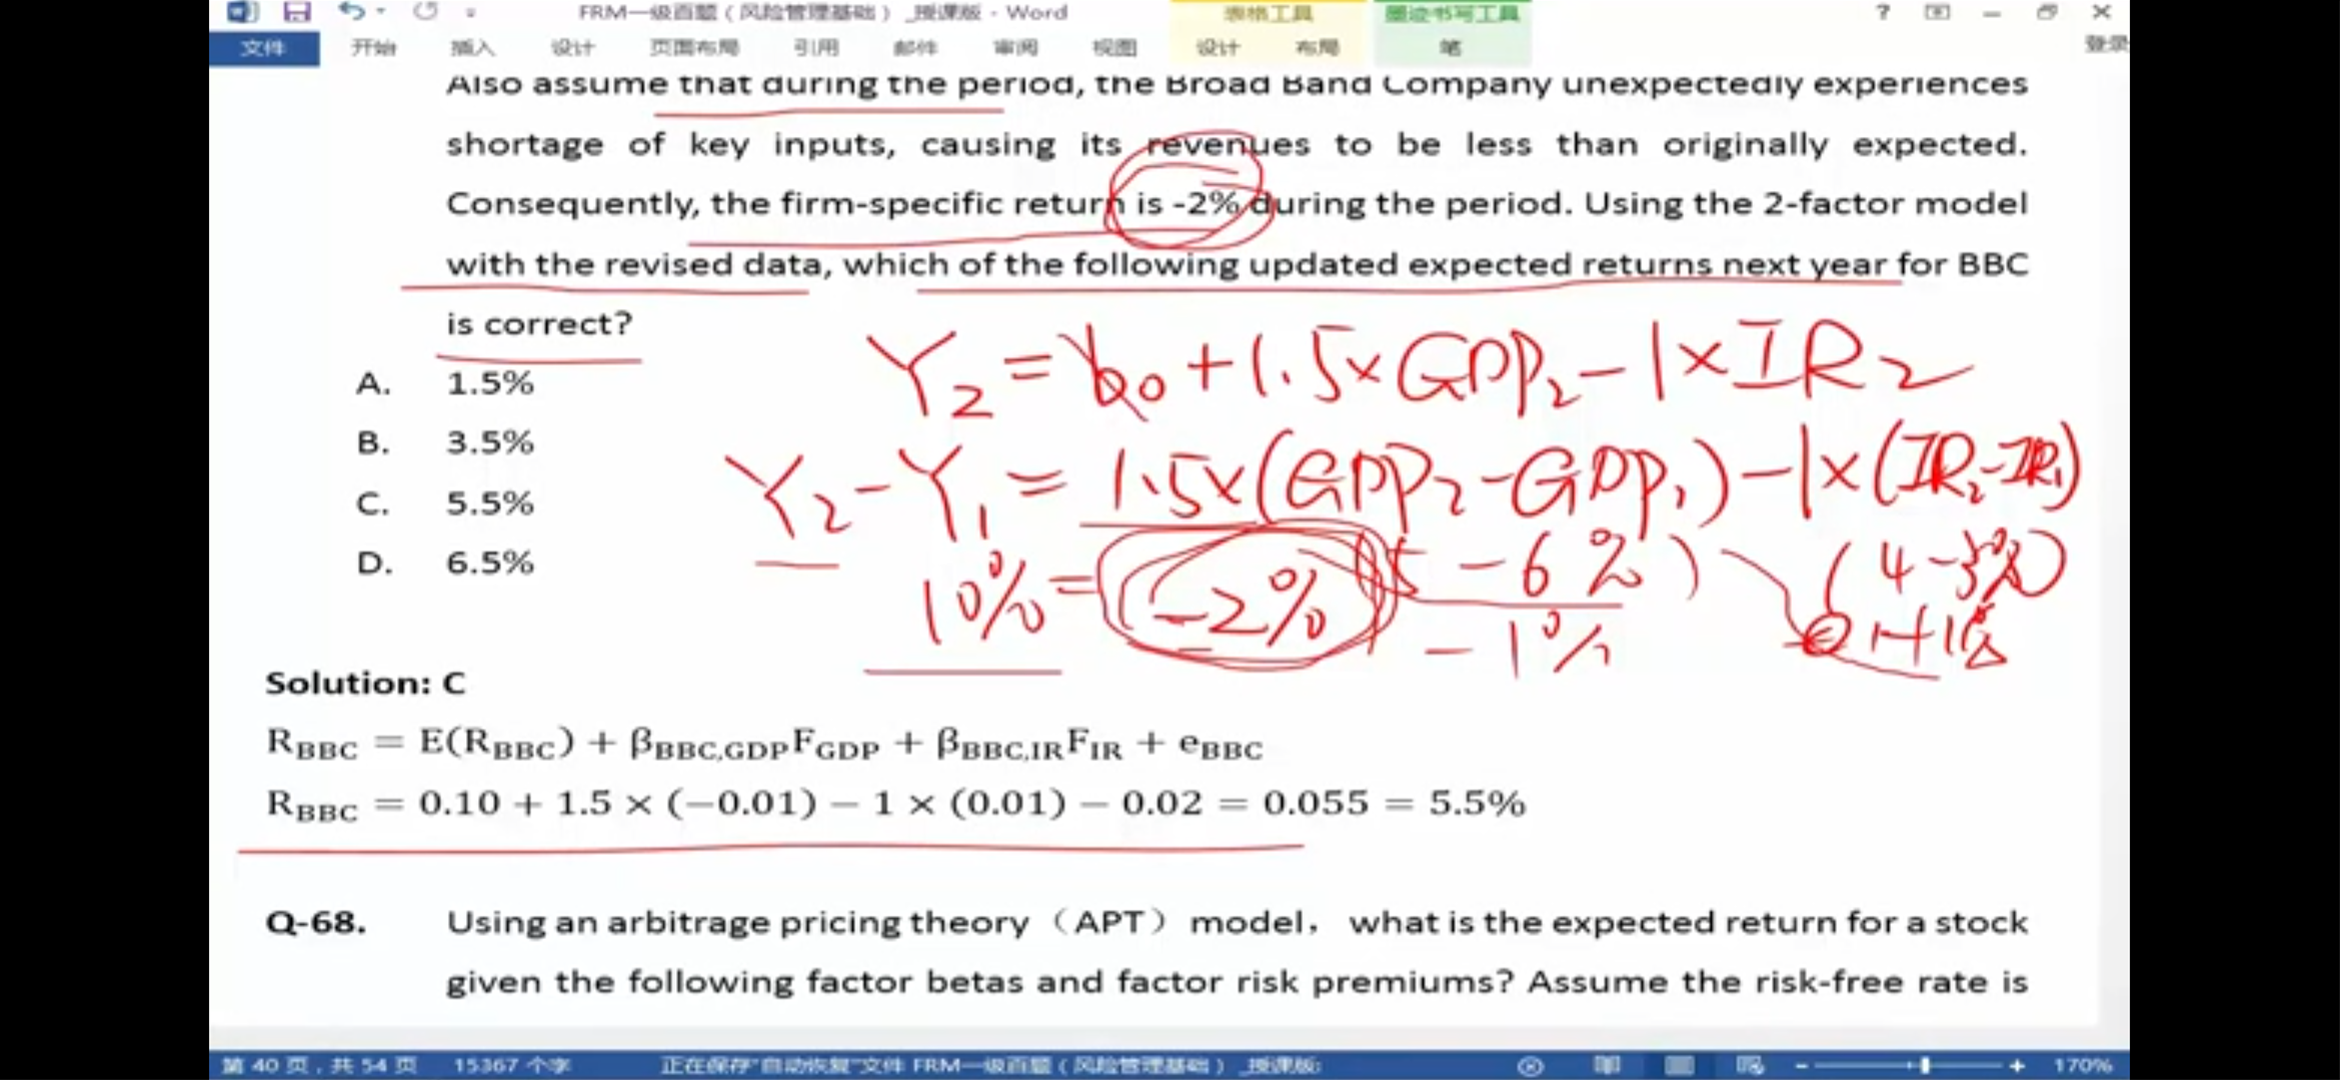 FRM一级百题（风险管理基础）_授课版 - Word
表格工具
墨迹书写工具
?
文件 开始 插入 设计 页面布局 引用 邮件 审阅 视图 设计 布局 笔 登录
Also assume that during the period, the Broad Band Company unexpectedly experiences
shortage of key inputs, causing its revenues to be less than originally expected.
Consequently, the firm-specific return is -2% during the period. Using the 2-factor model
with the revised data, which of the following updated expected returns next year for BBC
is correct?
Y₂ = b₀ + 1.5×GDP₂ - 1×IR₂
A. 1.5%
B. 3.5%
Y₂ - Y₁ = 1.5×(GDP₂-GDP₁) - 1×(IR₂-IR₁)
C. 5.5%
D. 6.5%
10% = -2% (5 - 6%) (4-3%)
-1% +1%
Solution: C
R_BBC = E(R_BBC) + β_BBC,GDP F_GDP + β_BBC,IR F_IR + e_BBC
R_BBC = 0.10 + 1.5 × (−0.01) − 1 × (0.01) − 0.02 = 0.055 = 5.5%
Q-68. Using an arbitrage pricing theory（APT）model， what is the expected return for a stock
given the following factor betas and factor risk premiums? Assume the risk-free rate is
第 40 页，共 54 页 15367 个字 正在保存"自动恢复"文件 FRM一级百题（风险管理基础）_授课版: 170%